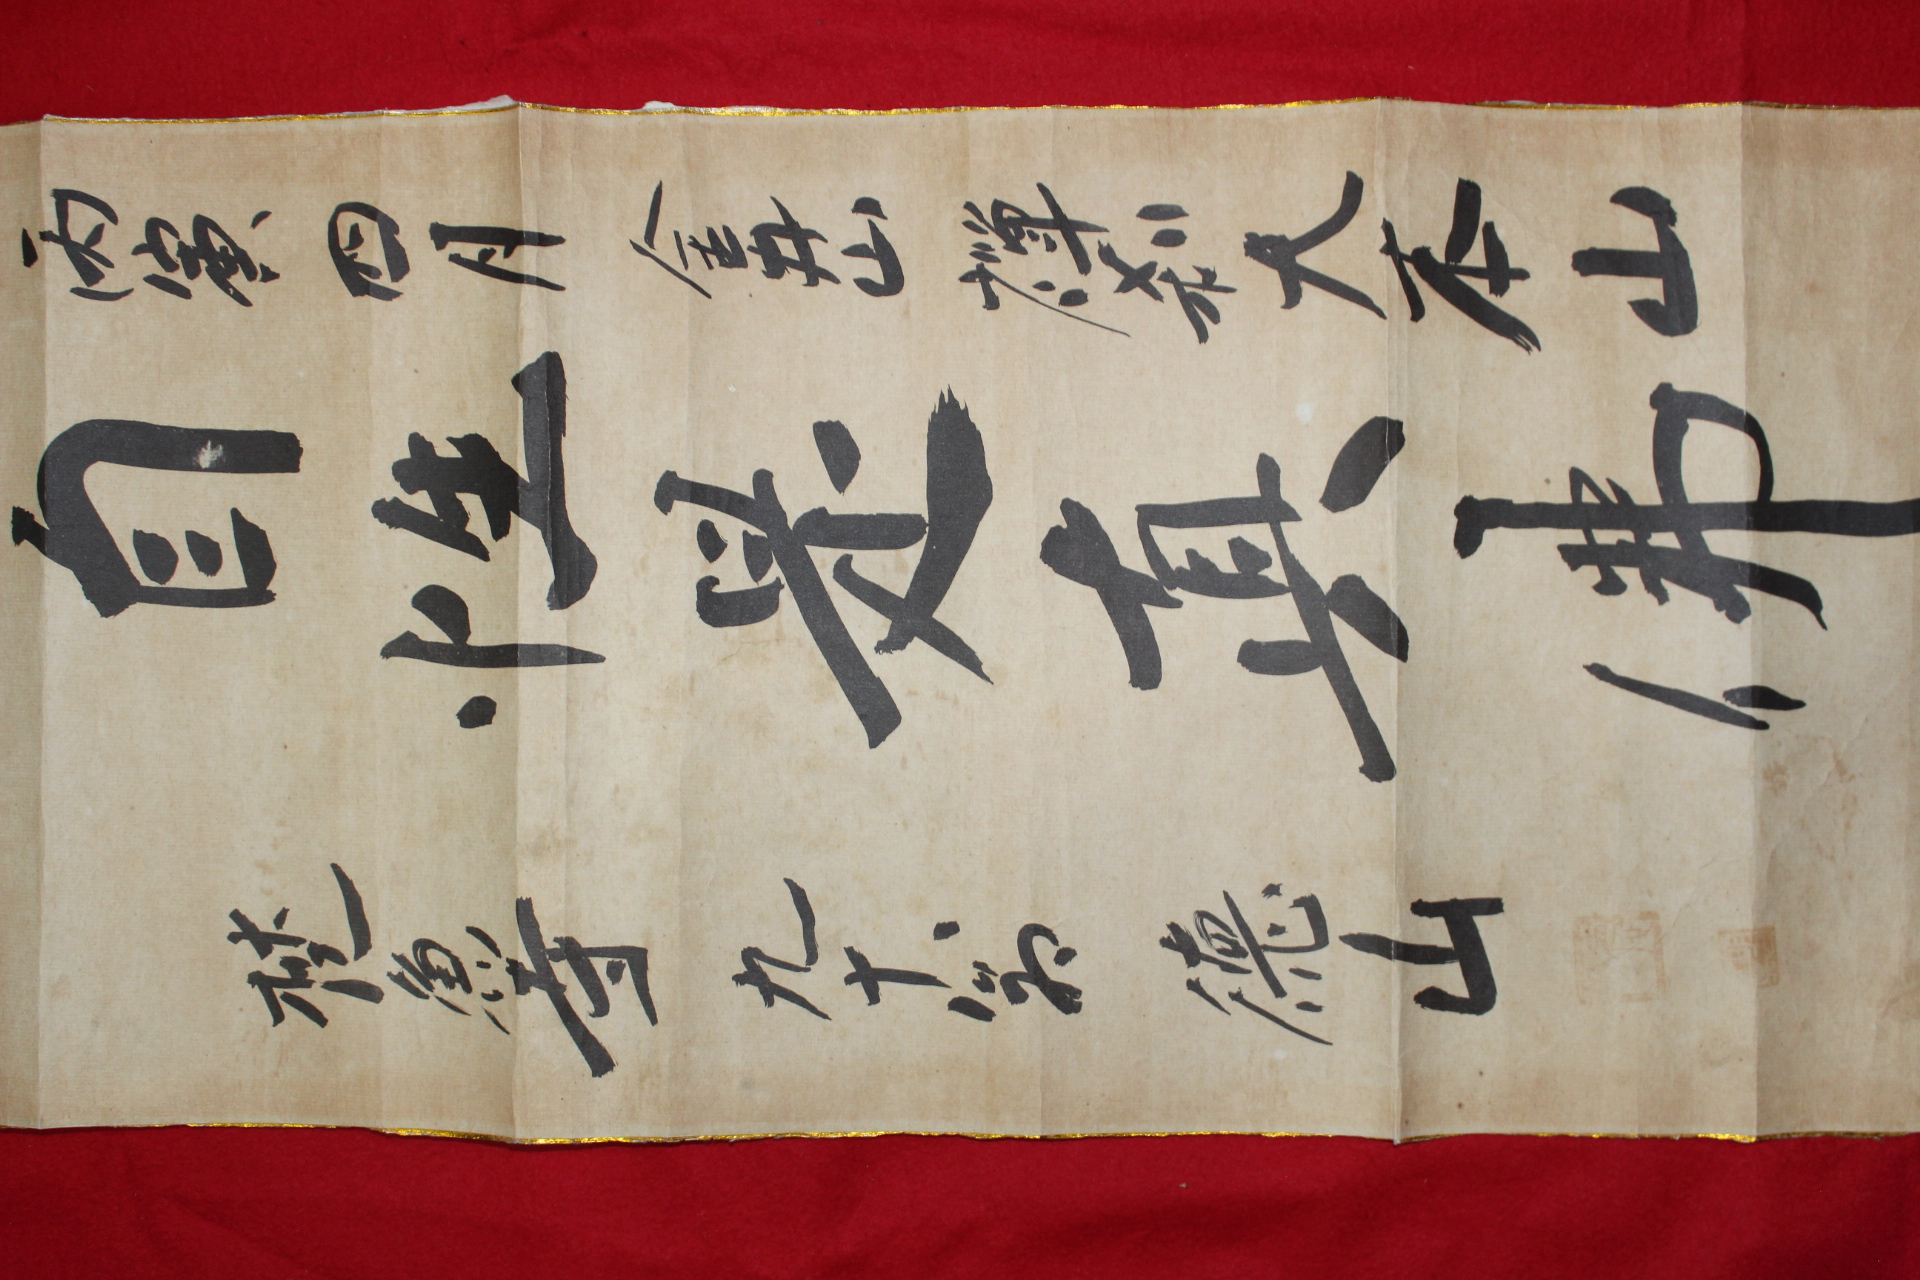 丙寅四月金井山禪刹大本山
自性是真佛
梵魚寺九十翁德山